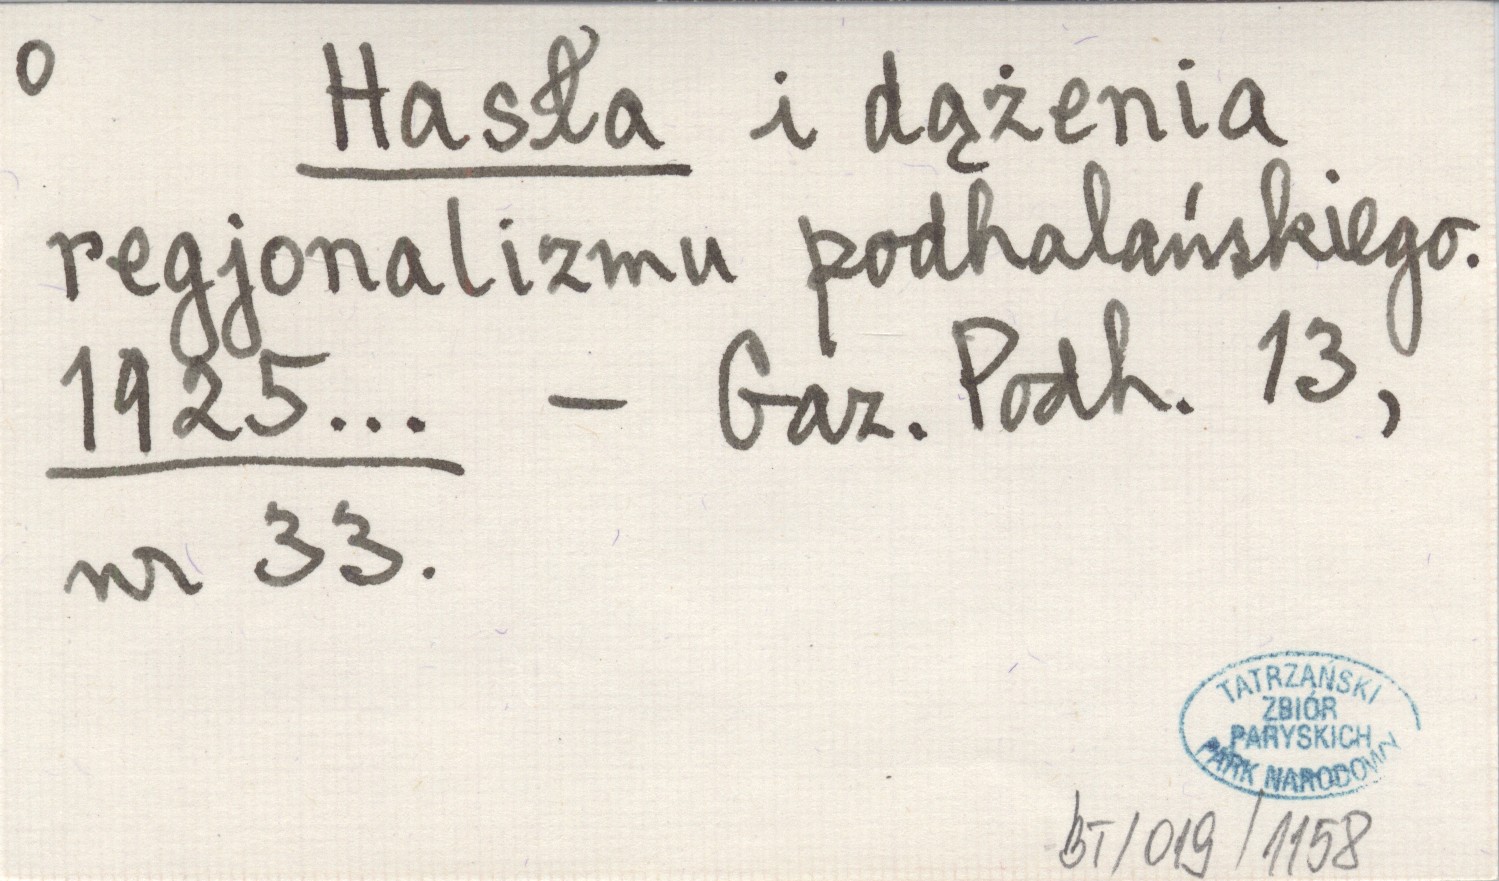 o Hasła i dążenia
regjonalizmu podhalańskiego.
1925... - Gaz. Podh. 13,
nr 33.
TATRZAŃSKI
ZBIÓR
PARYSKICH
PARK NARODOWY
BT/019/1158